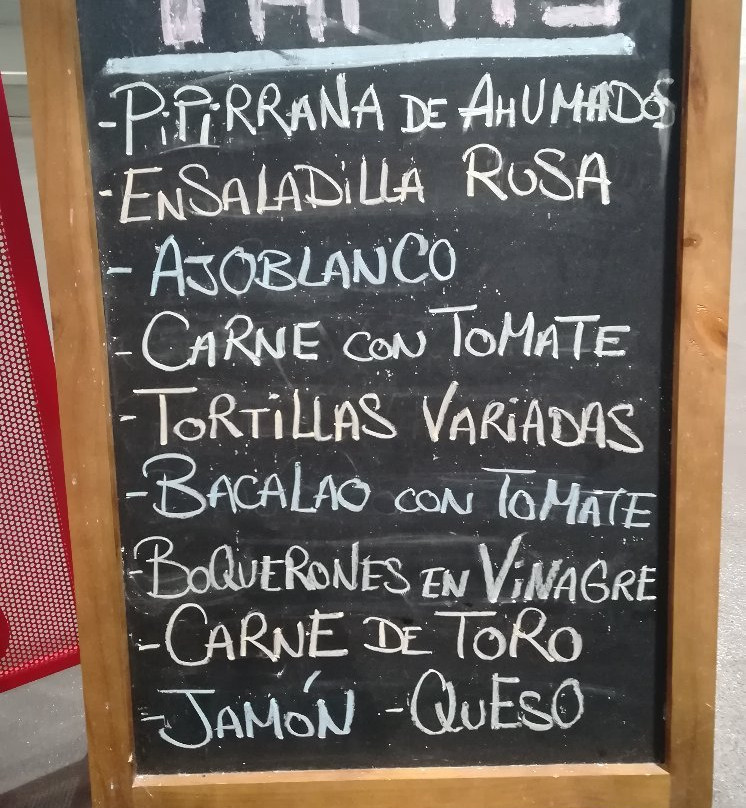 - PiPiRRANA DE AHUMADOS
- ENSALADiLLA RUSA
- AJOBLANCO
- CARNE CON TOMATE
- TORTiLLAS VARiADAS
- BACALAO CON TOMATE
- BOQUERONES EN ViNAGRE
- CARNE DE TORO
- JAMÓN - QUESO